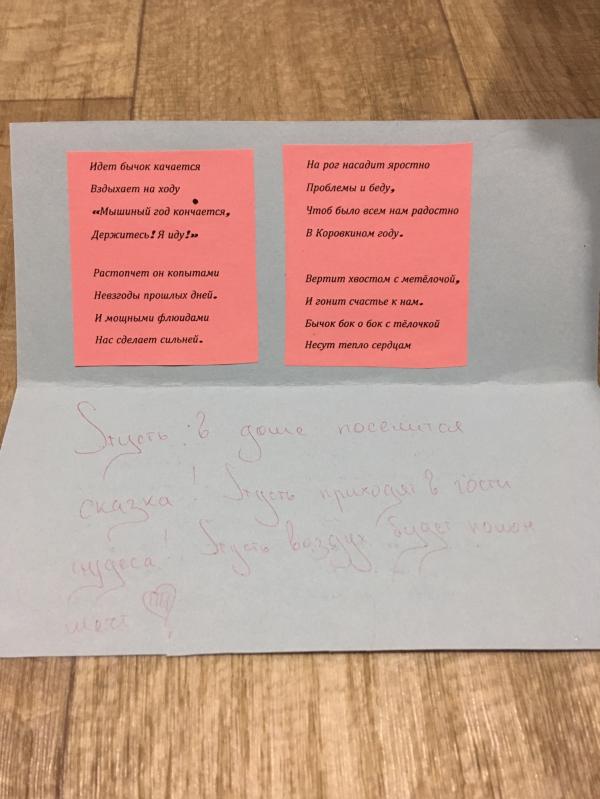 Идет бычок качается
Вздыхает на ходу
«Мышиный год кончается,
Держитесь! Я иду!»
Растопчет он копытами
Невзгоды прошлых дней.
И мощными флюидами
Нас сделает сильней.
На рог насадит яростно
Проблемы и беду,
Чтоб было всем нам радостно
В Коровкином году.
Вертит хвостом с метёлочой,
И гонит счастье к нам.
Бычок бок о бок с тёлочкой
Несут тепло сердцам
Пусть в доме поселится
сказка! Пусть приходят в гости
чудеса! Пусть воздух будет полон
мечт